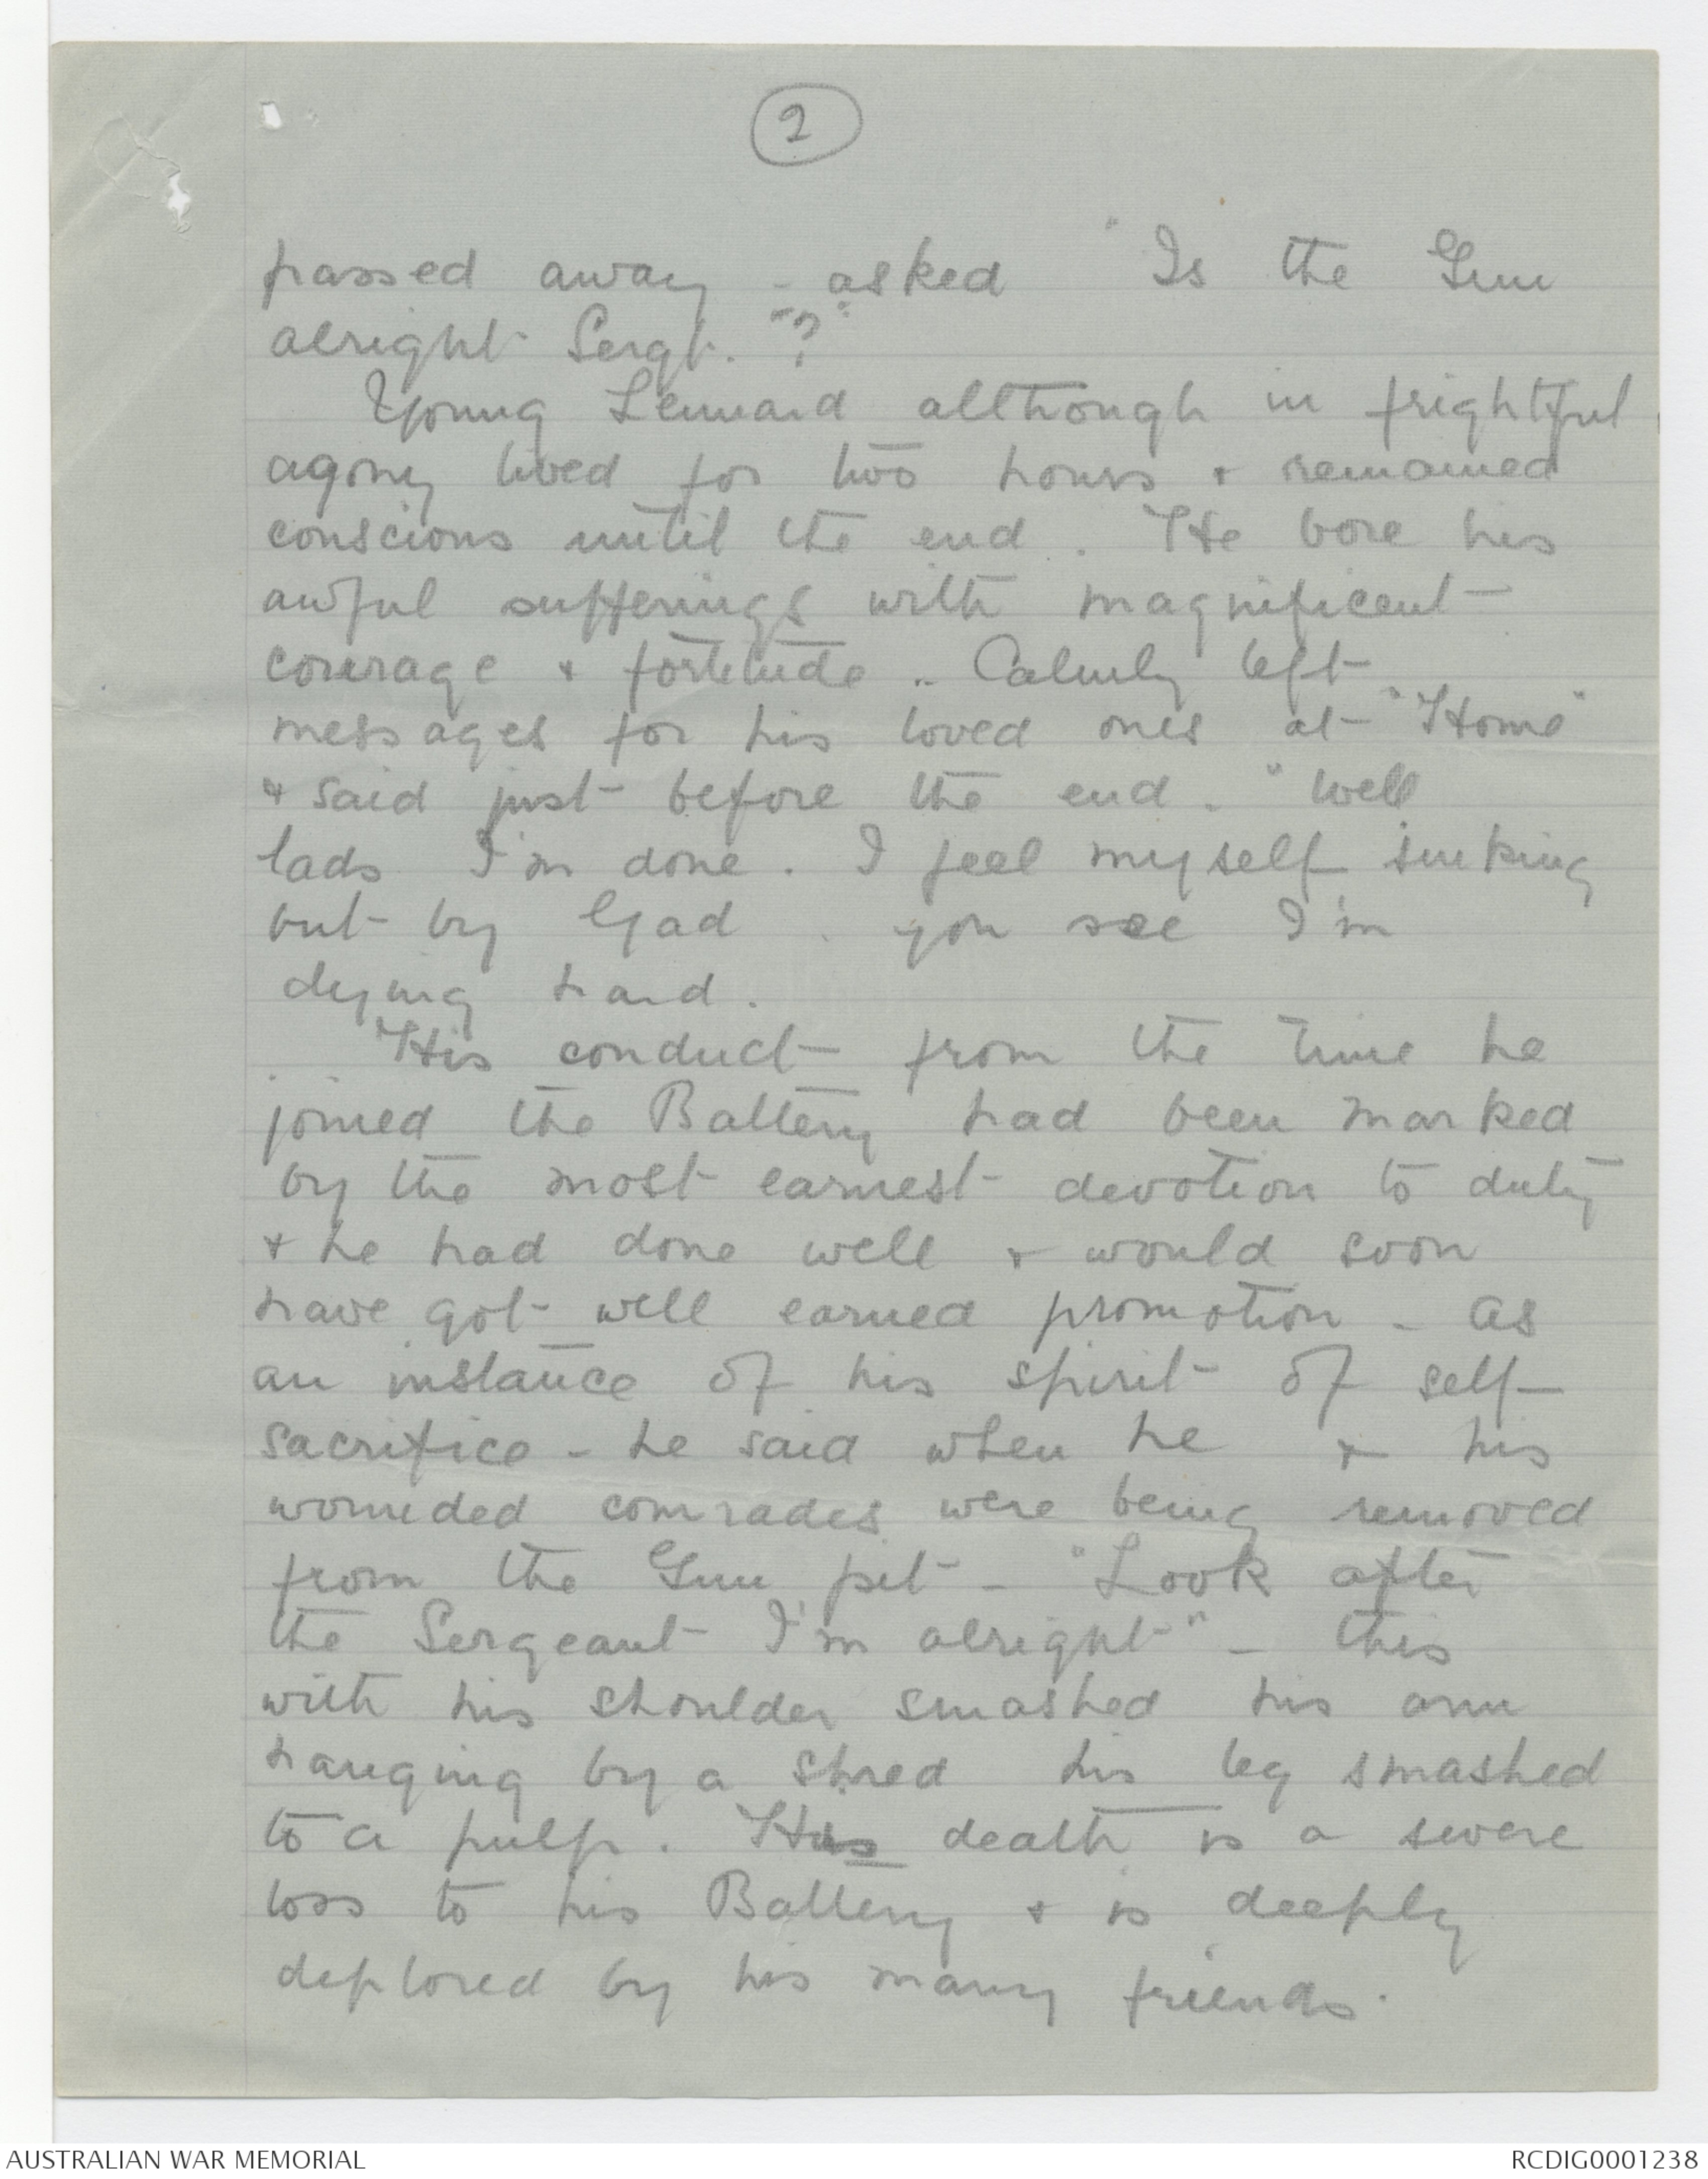 2
passed away - asked "Is the Gun
alright Sergt. "?"
Young Lennard although in frightful
agony lived for two hours & remained
conscious until the end. He bore his
awful sufferings with magnificent
courage & fortitude.. Calmly left
messages for his loved ones at "Home"
& said just before the end. "Well
lads I'm done. I feel myself sinking
but by Gad. you see I'm
dying hard.
His conduct from the time he
joined the Battery had been marked
by the most earnest devotion to duty
& he had done well & would soon
have got well earned promotion - as
an instance of his spirit of self-
sacrifice - he said when he & his
wounded comrades were being removed
from the Gun pit - "Look after
the Sergeant I'm alright" - this
with his shoulder smashed his arm
hanging by a shred his leg smashed
to a pulp. His death is a severe
loss to his Battery & is deeply
deplored by his many friends.
AUSTRALIAN WAR MEMORIAL
RCDIG0001238